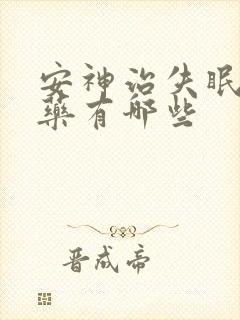 安神治失眠
药有哪些
晋成帝